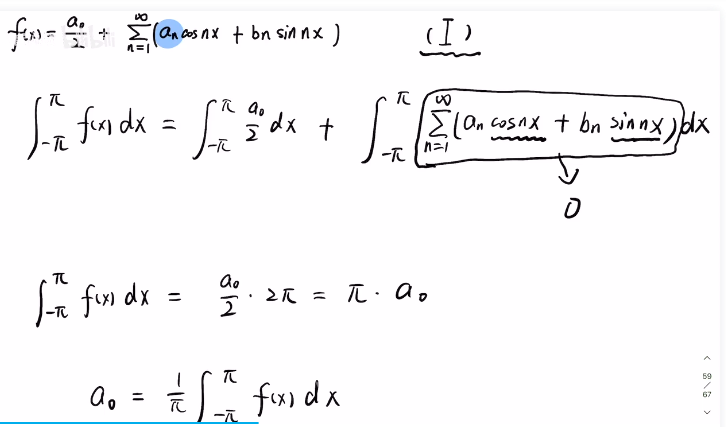 f(x) = a₀/2 + ∑_{n=1}^{∞} (aₙ cos nx + bn sin nx) (I)
∫_{-π}^{π} f(x) dx = ∫_{-π}^{π} a₀/2 dx + ∫_{-π}^{π} ∑_{n=1}^{∞} (aₙ cos nx + bₙ sin nx) dx
0
∫_{-π}^{π} f(x) dx = a₀/2 · 2π = π · a₀
a₀ = 1/π ∫_{-π}^{π} f(x) dx
59
/
67